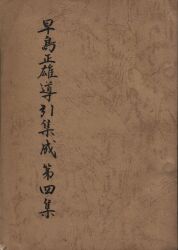 早島正雄導引集成第四集